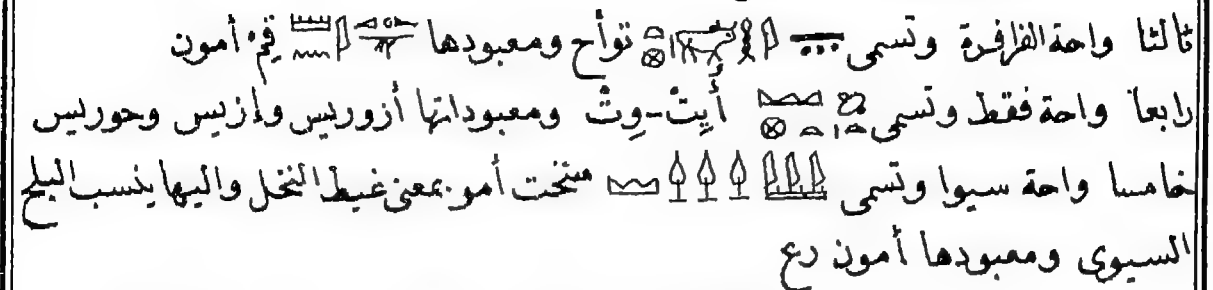 ثالثا واحة الفرافرة وتسمى توأح ومعبودها قم أمون
رابعا واحة فقط وتسمى أيت-وت ومعبوداتها أزوريس وإزيس وحوريس
خامسا واحة سيوا وتسمى أمو بمعنى غيط النخل واليها ينسب البلح
السيوى ومعبودها أمون رع